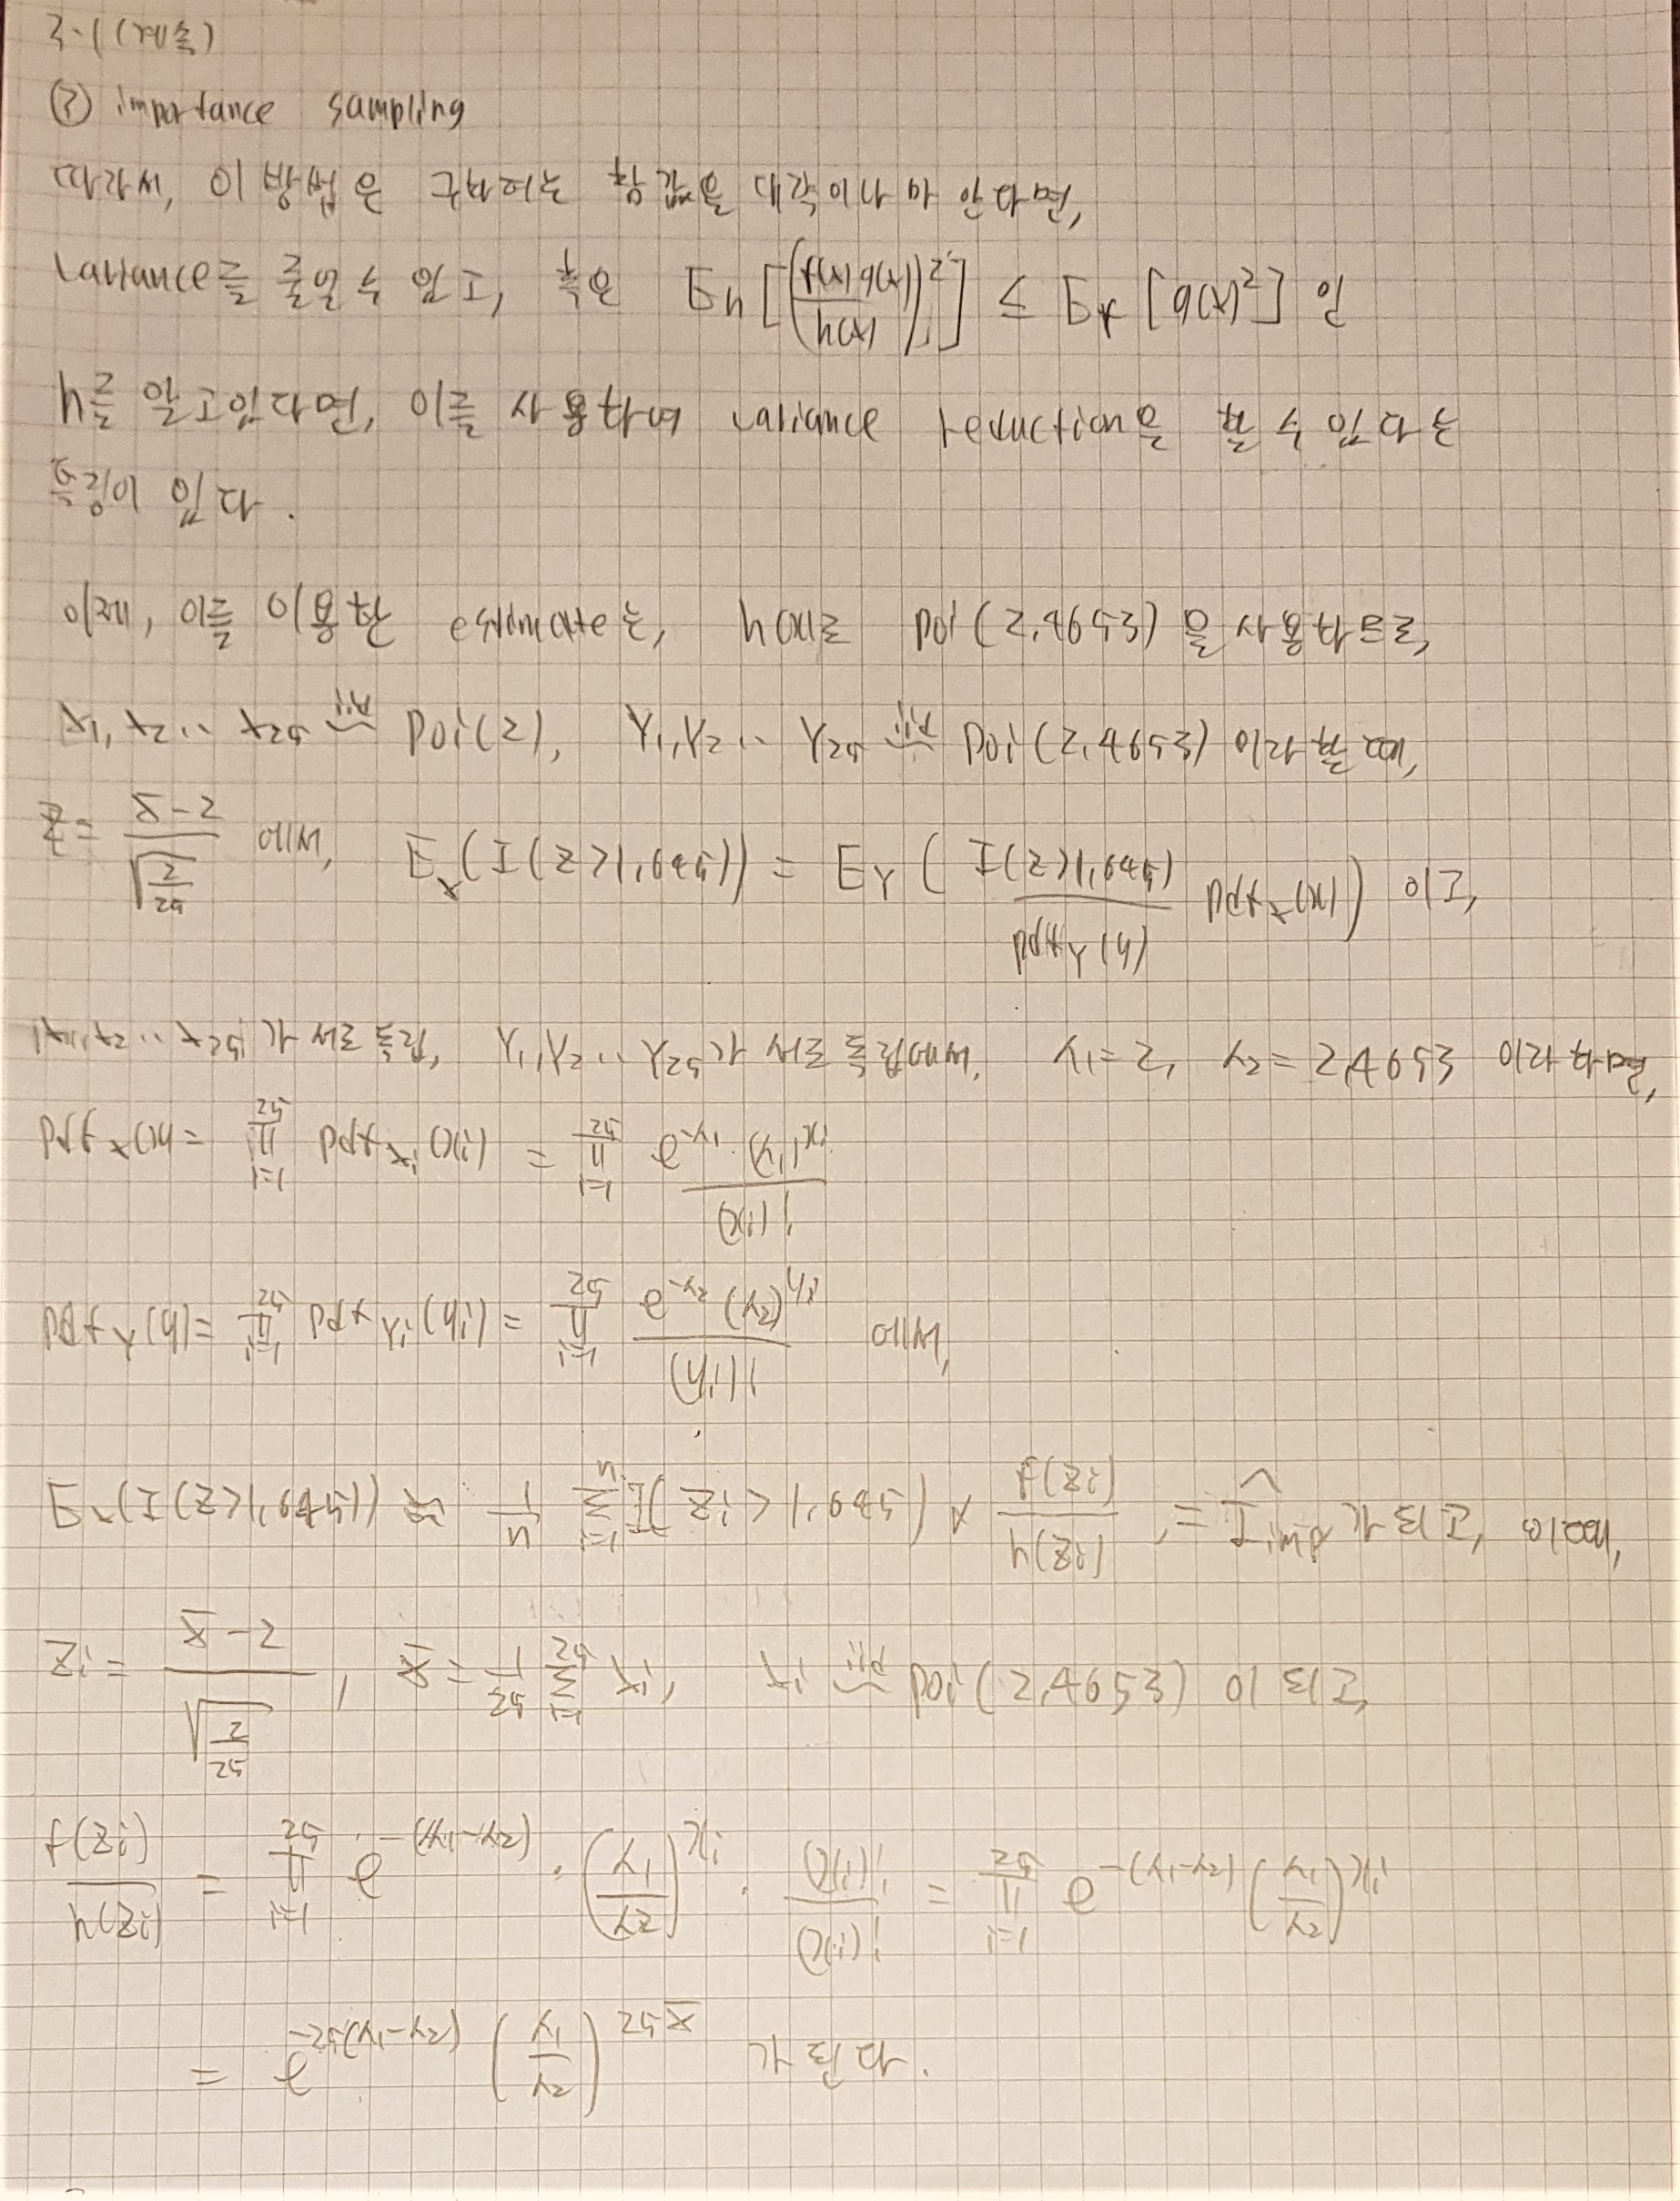 3-1 (계속)
③ importance sampling
따라서, 이 방법은 구하려는 참값을 대략이나마 안다면,
variance를 줄일 수 있고, 혹은 E_h[(f(x)g(x)/h(x))²] ≤ E_f[g(x)²] 인
h를 알고있다면, 이를 사용하여 variance reduction을 할 수 있다는
특징이 있다.
이제, 이를 이용한 estimate는, h(x)로 Poi(2.4653)을 사용하므로,
X₁, X₂ .. X₂₅ ~iid Poi(2), Y₁, Y₂ .. Y₂₅ ~iid Poi(2.4653) 이라 할 때,
Z = (X̄-2)/√(2/25) 에서, E_X(I(Z>1.645)) = E_Y(I(Z>1.645)/pdf_Y(y) pdf_X(x)) 이고,
X₁, X₂ .. X₂₅가 서로 독립, Y₁, Y₂ .. Y₂₅가 서로 독립에서, λ₁=2, λ₂=2.4653 이라 하면,
pdf_X(x) = ∏_{i=1}^{25} pdf_{X_i}(x_i) = ∏_{i=1}^{25} e^{-λ₁}·(λ₁)^{x_i}/(x_i)!
pdf_Y(y) = ∏_{i=1}^{25} pdf_{Y_i}(y_i) = ∏_{i=1}^{25} e^{-λ₂}(λ₂)^{y_i}/(y_i)! 에서,
E_X(I(Z>1.645)) ≈ 1/n ∑_{i=1}^{n} I(Z_i > 1.645) × f(Z_i)/h(Z_i) := Î_imp가 되고, 이때,
Z_i = (X̄-2)/√(2/25), X̄ = 1/25 ∑_{i=1}^{25} X_i, X_i ~iid Poi(2.4653) 이 되고,
f(Z_i)/h(Z_i) = ∏_{i=1}^{25} e^{-(λ₁-λ₂)}·(λ₁/λ₂)^{x_i}·(x_i)!/(x_i)! = ∏_{i=1}^{25} e^{-(λ₁-λ₂)}(λ₁/λ₂)^{x_i}
= e^{-25(λ₁-λ₂)}(λ₁/λ₂)^{25X̄} 가 된다.